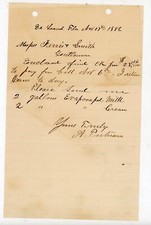 Nov 13th 1882
Messrs Ferris & Smith
Gentlemen
Enclosed find ck for $
to pay for bill Oct 6th I return
Cans to day.
Please Send me
2 gallons Evaporated Milk
2 " " Cream
Yours Truly
A